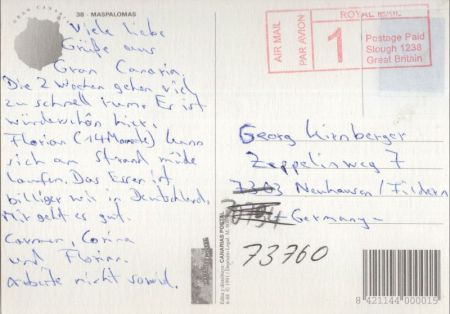 GRAN CANARIA
38 - MASPALOMAS
Viele liebe
Grüße aus
Gran Canaria.
Die 2 Wochen gehen viel
zu schnell rum. Es ist
wunderschön hier.
Florian (14 Monate) kann
sich am Strand müde
laufen. Das Essen ist
billiger wie in Deutschland.
Mir geht es gut.
Carmen, Corina
und Florian.
Arbeite nicht soviel.
ROYAL MAIL
AIR MAIL
PAR AVION
1
Postage Paid
Slough 1238
Great Britain
Georg Kirnberger
Zeppelinweg 7
Neuhausen / Fildern
Germany
73760
CANARIAS POSTAL
8 421144 000019